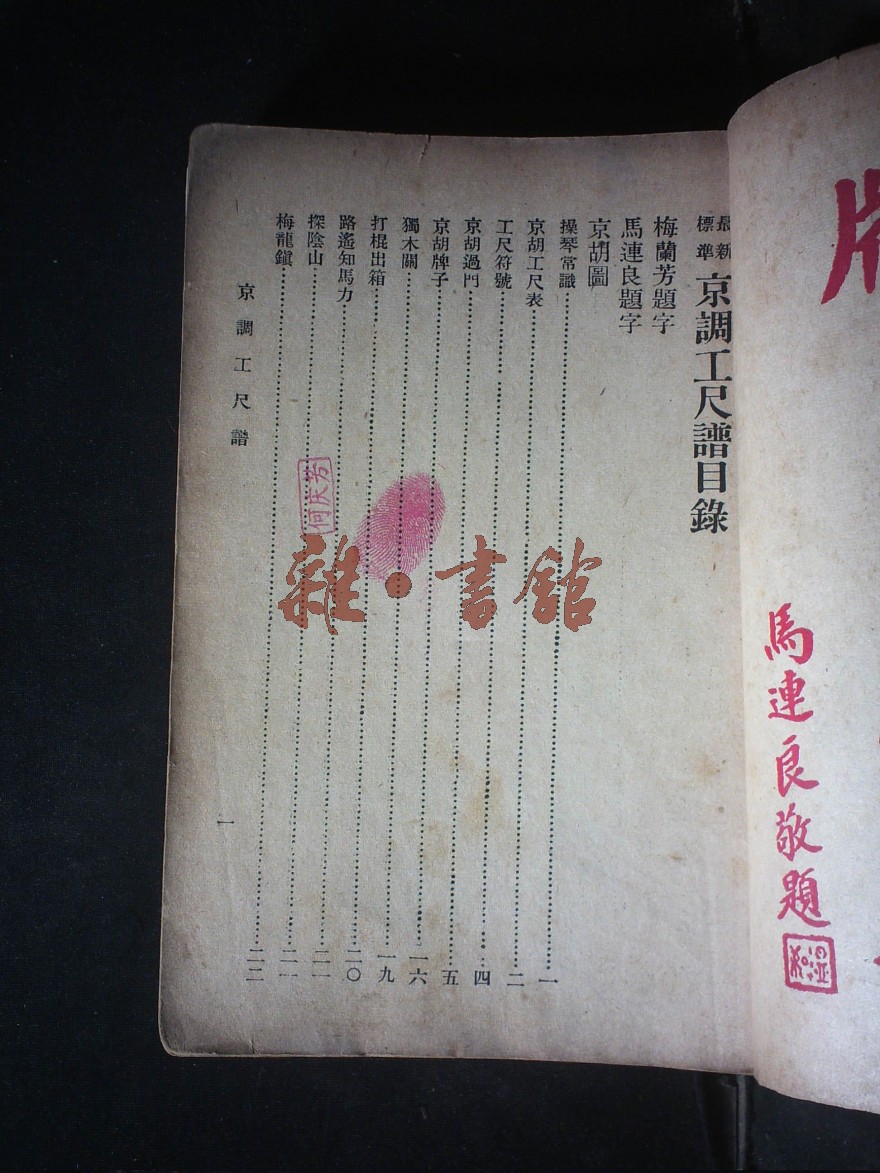 馬連良敬題
最新標準 京調工尺譜目錄
梅蘭芳題字
馬連良題字
京胡圖
操琴常識……一
京胡工尺表……二
工尺符號……四
京胡過門……五
京胡牌子……一六
獨木關……一九
打棍出箱……二〇
路遙知馬力……二一
探陰山……二一
梅龍鎮……二二
京調工尺譜
一
何庆芳
雜·書館